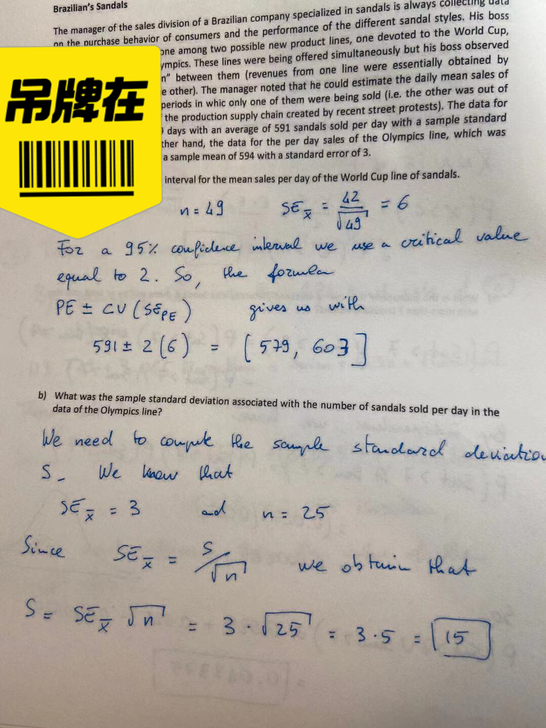 Brazilian's Sandals
The manager of the sales division of a Brazilian company specialized in sandals is always collecting data
on the purchase behavior of consumers and the performance of the different sandal styles. His boss
one among two possible new product lines, one devoted to the World Cup,
ympics. These lines were being offered simultaneously but his boss observed
n" between them (revenues from one line were essentially obtained by
e other). The manager noted that he could estimate the daily mean sales of
periods in whic only one of them were being sold (i.e. the other was out of
the production supply chain created by recent street protests). The data for
days with an average of 591 sandals sold per day with a sample standard
ther hand, the data for the per day sales of the Olympics line, which was
a sample mean of 594 with a standard error of 3.
吊牌在
interval for the mean sales per day of the World Cup line of sandals.
n = 49 SE_x̄ = 42/√49 = 6
For a 95% confidence interval we use a critical value
equal to 2. So, the formula
PE ± CV (SE_PE) gives us with
591 ± 2 (6) = [579, 603]
b) What was the sample standard deviation associated with the number of sandals sold per day in the
data of the Olympics line?
We need to compute the sample standard deviation
S. We know that
SE_x̄ = 3 and n = 25
Since SE_x̄ = S/√n we obtain that
S = SE_x̄ √n = 3 · √25 = 3 · 5 = 15